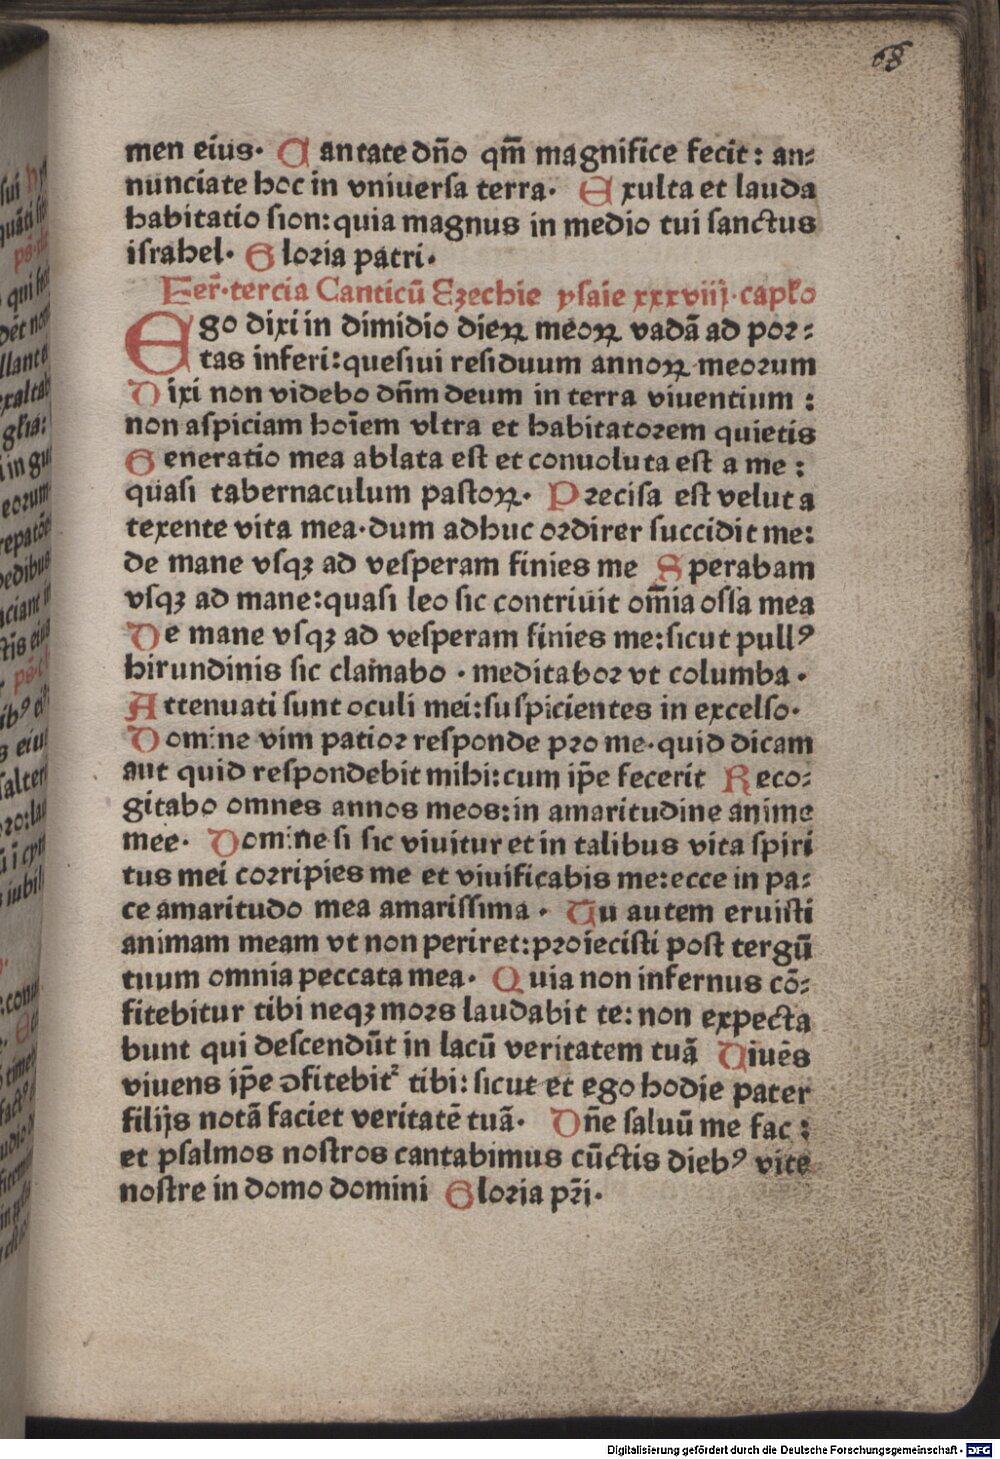 68
men eius· Cantate dño qm̃ magnifice fecit: an⸗
nunciate hoc in vniuersa terra· Exulta et lauda
habitatio sion: quia magnus in medio tui sanctus
israhel· Gloria patri·
Fer̃·tercia Canticū Ezechie ysaie xxxviij·capło
Ego dixi in dimidio dieꝝ meoꝝ vadā ad por⸗
tas inferi: quesiui residuum annoꝝ meorum
Dixi non videbo dñm deum in terra viuentium :
non aspiciam hoīem vltra et habitatorem quietis
Generatio mea ablata est et conuoluta est a me :
quasi tabernaculum pastoꝝ· Precisa est velut a
texente vita mea·dum adhuc ordirer succidit me:
de mane vsqꝫ ad vesperam finies me Sperabam
vsqꝫ ad mane: quasi leo sic contriuit om̄ia ossa mea
De mane vsqꝫ ad vesperam finies me: sicut pullꝰ
hirundinis sic clamabo · meditabor vt columba ·
Attenuati sunt oculi mei: suspicientes in excelso·
Domine vim patior responde pro me·quid dicam
aut quid respondebit mihi: cum ip̄e fecerit Reco⸗
gitabo omnes annos meos: in amaritudine anime
mee· Domine si sic viuitur et in talibus vita spiri
tus mei corripies me et viuificabis me: ecce in pa⸗
ce amaritudo mea amarissima · Tu autem eruisti
animam meam vt non periret: proiecisti post tergū
tuum omnia peccata mea· Quia non infernus cō⸗
fitebitur tibi neqꝫ mors laudabit te: non expecta
bunt qui descendūt in lacū veritatem tuā Viuēs
viuens ip̄e ↄfitebit᷑ tibi: sicut et ego hodie pater
filijs notā faciet veritatē tuā· Dñe saluū me fac :
et psalmos nostros cantabimus cūctis diebꝰ vite
nostre in domo domini Gloria pr̃i·
Digitalisierung gefördert durch die Deutsche Forschungsgemeinschaft - DFG